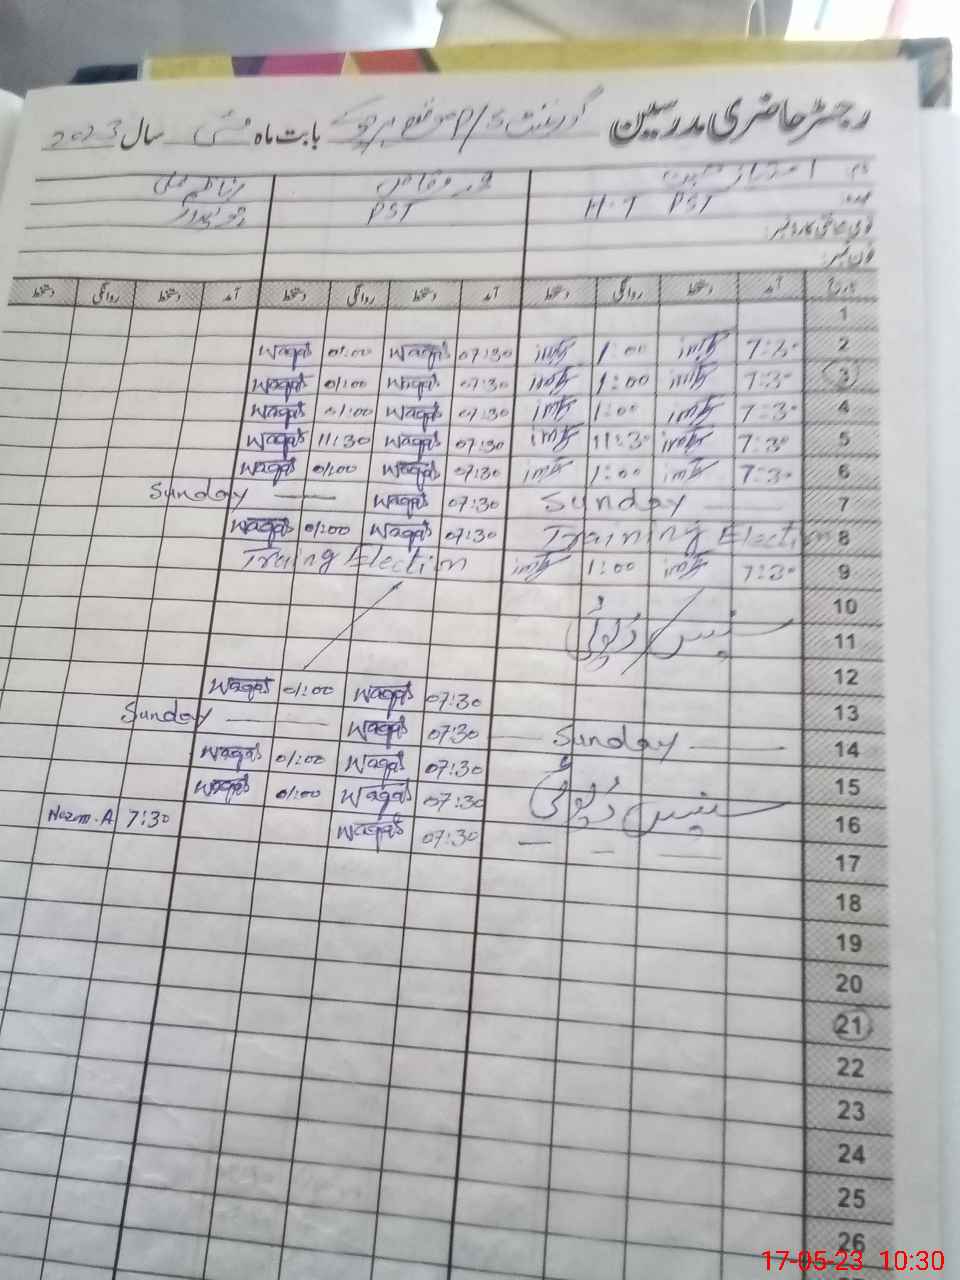 رجسٹر حاضری مدرسین گورنمنٹ P/S موضع بابت ماہ مئی سال 2023
نام
عہدہ H.T PST PST
قومی شناختی کارڈ نمبر:
فون نمبر:
تاریخ آمد دستخط روانگی دستخط آمد دستخط روانگی دستخط آمد دستخط روانگی دستخط
1
2 7:30 1:00 07:30 Waqas 01:00 Waqas
3 7:30 1:00 07:30 Waqas 01:00 Waqas
4 7:30 1:00 07:30 Waqas 01:00 Waqas
5 7:30 11:30 07:30 Waqas 11:30 Waqas
6 7:30 1:00 07:30 Waqas 01:00 Waqas
7 Sunday 07:30 Waqas Sunday
8 Training Election 07:30 Waqas 01:00 Waqas
9 7:30 1:00 Training Election
10
11 سینس ڈیوٹی
12
13 07:30 Waqas 01:00 Waqas
14 Sunday 07:30 Waqas Sunday
15 07:30 Waqas 01:00 Waqas
16 سینس ڈیوٹی 07:30 Waqas 01:00 Waqas
17 07:30 Waqas 7:30 Nazm.A
18
19
20
21
22
23
24
25
26
17-05-23 10:30